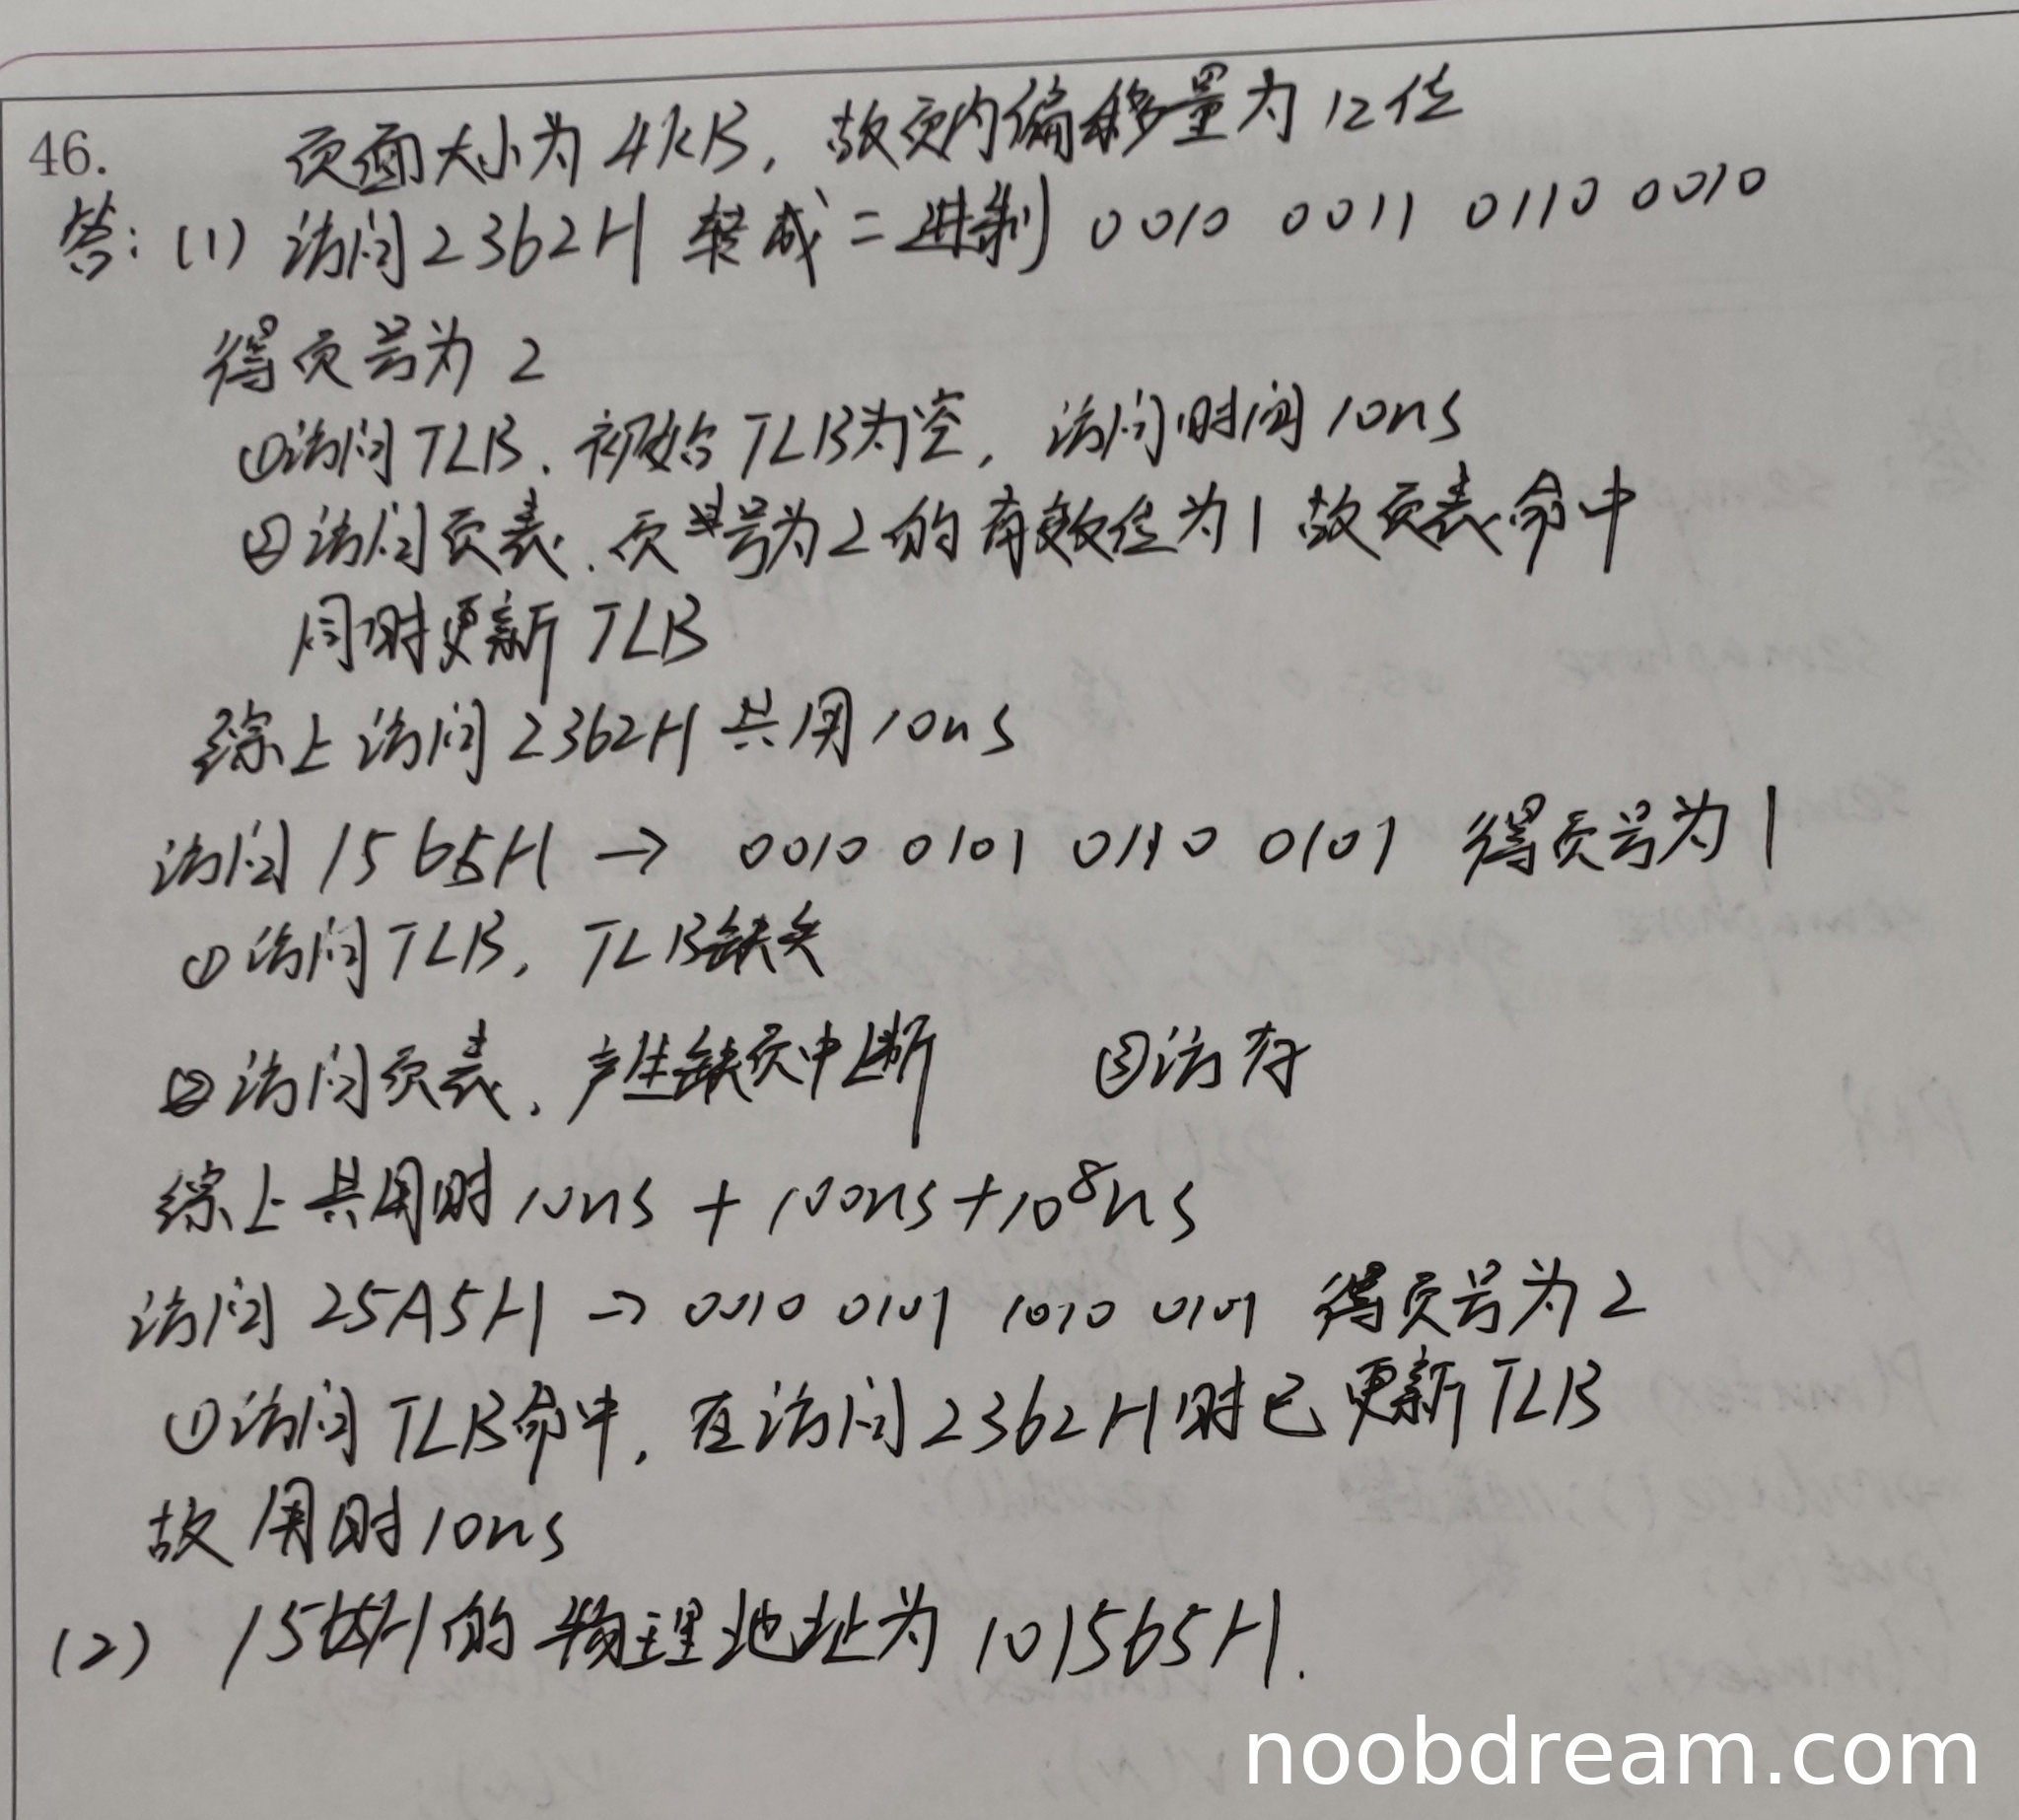 46.
页面大小为4KB，故页内偏移量为12位
答：(1) 访问2362H 转成二进制 0010 0011 0110 0010
得页号为 2
①访问TLB、初始TLB为空，访问时间10ns
②访问页表、页号为2的有效位为1 故页表命中
同时更新TLB
综上访问2362H共用10ns
访问1565H → 0010 0101 0110 0101 得页号为1
①访问TLB，TLB缺失
②访问页表、产生缺页中断 ③访存
综上共用时10ns + 100ns + 10⁸ns
访问25A5H → 0010 0101 1010 0101 得页号为2
①访问TLB命中，在访问2362H时已更新TLB
故用时10ns
(2) 1565H的物理地址为101565H.
noobdream.com